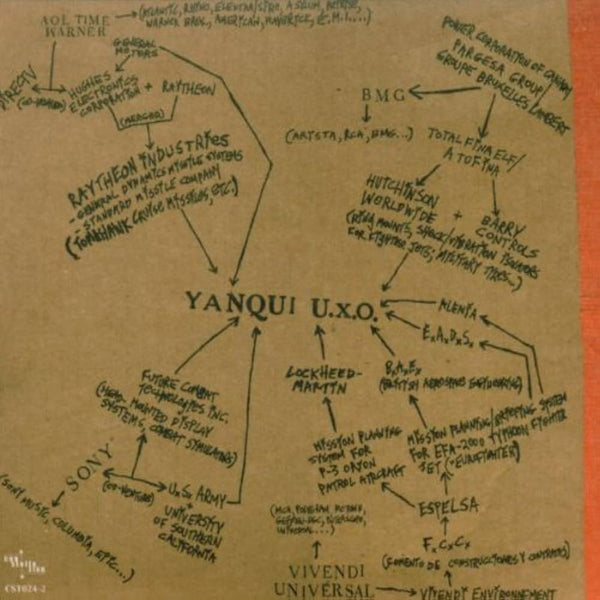 AOL TIME
WARNER
(ATLANTIC, RHINO, ELEKTRA/SIRE, ASYLUM, REPRISE,
WARNER BROS., AMERICAN, MAVERICK, E.M.I.,...)
GENERAL
MOTORS
DIRECTV
(CO-VENTURE)
HUGHES
ELECTRONICS
CORPORATION
+ RAYTHEON
(MERGED)
RAYTHEON INDUSTRIES
- GENERAL DYNAMICS MISSILE SYSTEMS
- STANDARD MISSILE COMPANY
(TOMAHAWK CRUISE MISSILES, ETC.)
POWER CORPORATION OF CANADA/
PARGESA GROUP/
GROUPE BRUXELLES LAMBERT
BMG
(ARISTA, RCA, BMG...)
TOTAL FINA ELF/
ATOFINA
HUTCHINSON
WORLDWIDE
+
BARRY
CONTROLS
(RING MOUNTS, SHOCK/VIBRATION ISOLATORS
FOR FIGHTER JETS; MILITARY TIRES...)
YANQUI U.X.O.
ALENIA
E.A.D.S.
LOCKHEED-
MARTIN
B.A.E.
(BRITISH AEROSPACE ENGINEERING)
FUTURE COMBAT
TECHNOLOGIES INC.
(HEAD-MOUNTED DISPLAY
SYSTEMS, COMBAT SIMULATORS)
MISSION PLANNING
SYSTEM FOR
P-3 ORION
PATROL AIRCRAFT
MISSION PLANNING/BRIEFING SYSTEM
FOR EFA-2000 TYPHOON FIGHTER
JET ("EUROFIGHTER")
SONY
(CO-VENTURE)
U.S. ARMY
+
UNIVERSITY
OF SOUTHERN
CALIFORNIA
(SONY MUSIC, COLUMBIA, EPIC...)
(MCA, POLYGRAM, MOTOWN,
GEFFEN-DGC, INTERSCOPE,
UNIVERSAL...)
ESPELSA
F.C.C.
(FOMENTO DE CONSTRUCCIONES Y CONTRATAS)
VIVENDI
UNIVERSAL
VIVENDI ENVIRONNEMENT
CST024-2